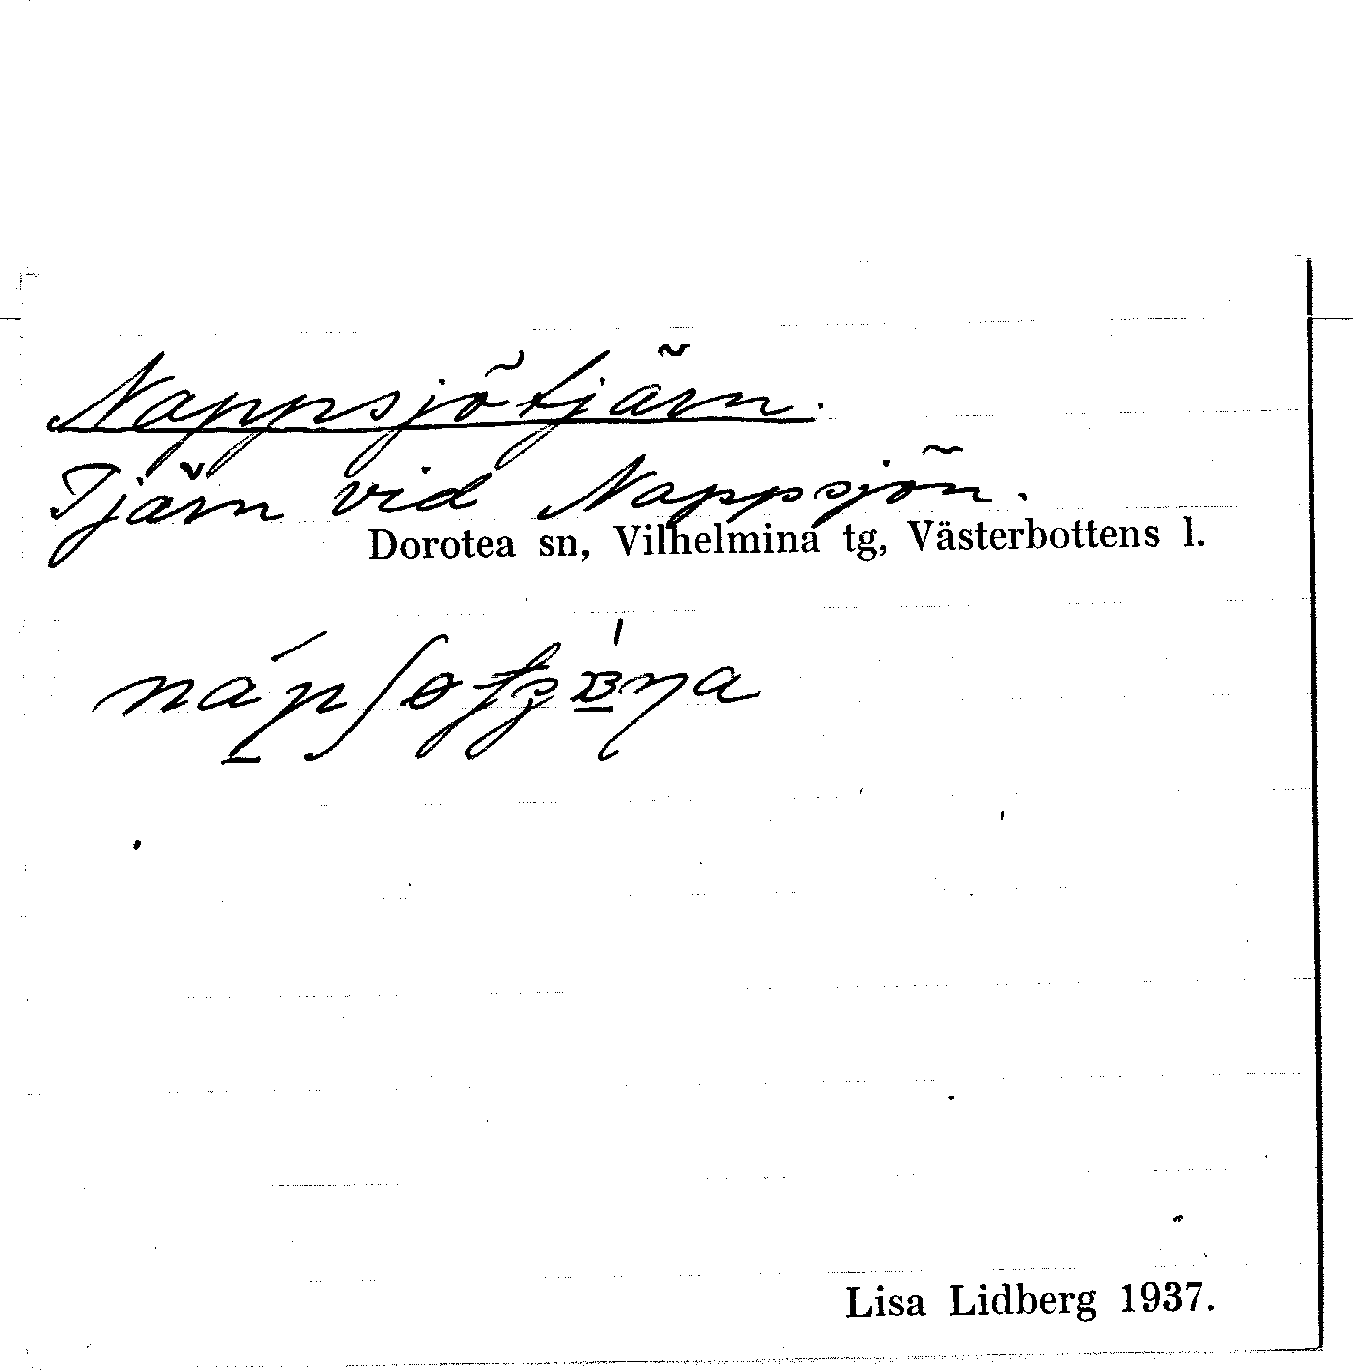 Nappsjötjärn.
Tjärn vid Nappsjön.
Dorotea sn, Vilhelmina tg, Västerbottens l.
Lisa Lidberg 1937.